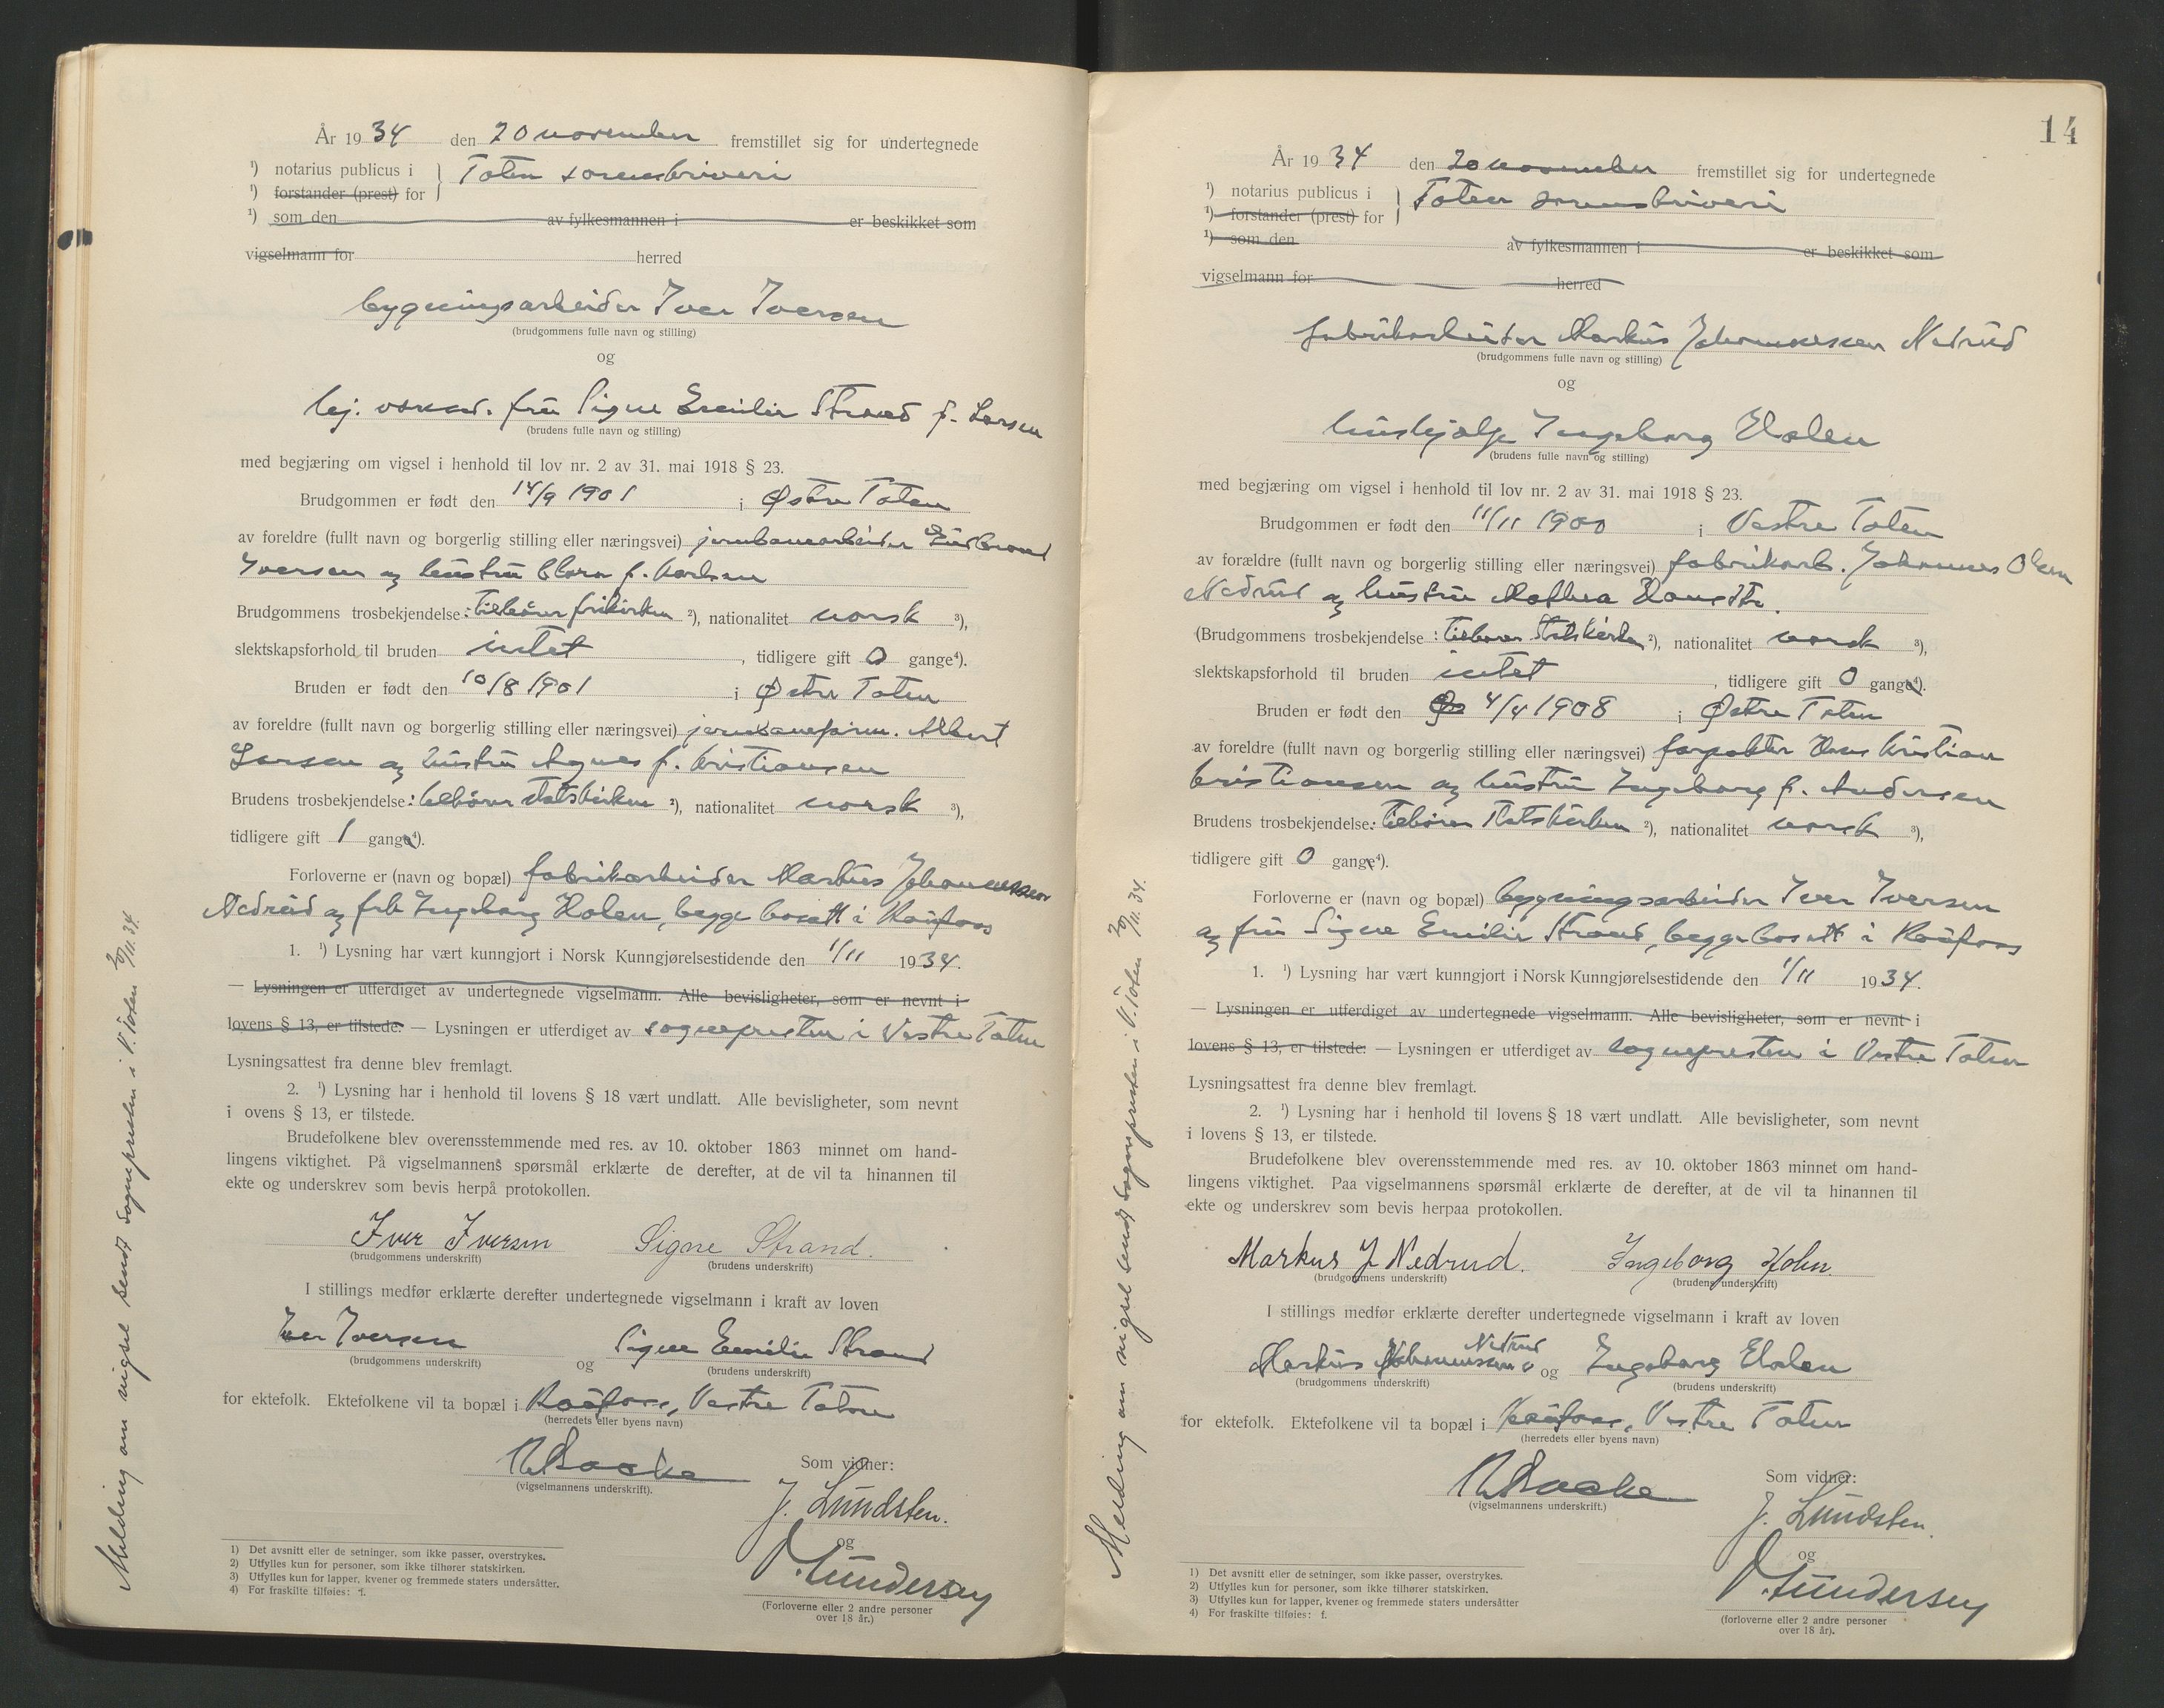 År 1934 den 20 november fremstillet sig for undertegnede
¹) notarius publicus i } Toten sorenskriveri
¹) forstander (prest) for
¹) som den av fylkesmannen i er beskikket som
vigselmann for herred
bygningsarbeider Iver Iversen
(brudgommens fulle navn og stilling)
og
fru Signe Emilie Strand f. Larsen
(brudens fulle navn og stilling)
med begjæring om vigsel i henhold til lov nr. 2 av 31. mai 1918 § 23.
Brudgommen er født den 14/9 1901 i Østre Toten
av foreldre (fullt navn og borgerlig stilling eller næringsvei) jernbanearbeider Gudbrand
Iversen og hustru Clara f. Karlsen
Brudgommens trosbekjendelse: tilhører frikirken ²), nationalitet norsk ³),
slektskapsforhold til bruden intet, tidligere gift 0 gange⁴).
Bruden er født den 10/8 1901 i Østre Toten
av foreldre (fullt navn og borgerlig stilling eller næringsvei) jernbaneform. Albert
Larsen og hustru Agnes f. Kristiansen
Brudens trosbekjendelse: tilhører statskirken ²), nationalitet norsk ³),
tidligere gift 1 gange⁴).
Forloverne er (navn og bopæl) fabrikarbeider Markus Johannessen
Nedrud og frk Ingeborg Holen, begge bosatt i Raufoss
1. ¹) Lysning har vært kunngjort i Norsk Kunngjørelsestidende den 1/11 1934.
— Lysningen er utferdiget av undertegnede vigselmann. Alle bevisligheter, som er nevnt i
lovens § 13, er tilstede. — Lysningen er utferdiget av sognepresten i Vestre Toten
Lysningsattest fra denne blev fremlagt.
2. ¹) Lysning har i henhold til lovens § 18 vært undlatt. Alle bevisligheter, som nevnt
i ovens § 13, er tilstede.
Brudefolkene blev overensstemmende med res. av 10. oktober 1863 minnet om hand-
lingens viktighet. På vigselmannens spørsmål erklærte de derefter, at de vil ta hinannen til
ekte og underskrev som bevis herpå protokollen.
Iver Iversen Signe Strand.
(brudgommens underskrift) (brudens underskrift)
I stillings medfør erklærte derefter undertegnede vigselmann i kraft av loven
Iver Iversen og Signe Emilie Strand
(brudgommens underskrift) (brudens underskrift)
for ektefolk. Ektefolkene vil ta bopæl i Raufoss, Vestre Toten
(herredets eller byens navn)
(vigselmannens underskrift).
Som vidner:
J. Lundsten.
og
Gundersen
(Forloverne eller 2 andre personer
over 18 år.)
1) Det avsnitt eller de setninger, som ikke passer, overstrykes.
2) Utfylles kun for personer, som ikke tilhører statskirken.
3) Utfylles kun for lapper, kvener og fremmede staters undersåtter.
4) For fraskilte tilføies: f.
Melding om vigsel sendt sognepresten i V. Toten 20/11.34.
14
År 1934 den 20 november fremstillet sig for undertegnede
¹) notarius publicus i } Toten sorenskriveri
¹) forstander (prest) for
¹) som den av fylkesmannen i er beskikket som
vigselmann for herred
fabrikarbeider Markus Johannessen Nedrud
(brudgommens fulle navn og stilling)
og
hushjelp Ingeborg Holen
(brudens fulle navn og stilling)
med begjæring om vigsel i henhold til lov nr. 2 av 31. mai 1918 § 23.
Brudgommen er født den 11/11 1900 i Vestre Toten
av forældre (fullt navn og borgerlig stilling eller næringsvei) fabrikarb. Johannes Olsen
Nedrud og hustru Mathea Hansdtr.
(Brudgommens trosbekjendelse: tilhører statskirken ²), nationalitet norsk ³),
slektskapsforhold til bruden intet, tidligere gift 0 gange⁴).
Bruden er født den 4/4 1908 i Østre Toten
av foreldre (fullt navn og borgerlig stilling eller næringsvei) forpakter Hans Kristian
Kristiansen og hustru Ingeborg f. Andersen
Brudens trosbekjendelse: tilhører statskirken ²), nationalitet norsk ³),
tidligere gift 0 gange⁴).
Forloverne er (navn og bopæl) bygningsarbeider Iver Iversen
og fru Signe Emilie Strand, begge bosatt i Raufoss
1. ¹) Lysning har vært kunngjort i Norsk Kunngjørelsestidende den 1/11 1934.
— Lysningen er utferdiget av undertegnede vigselmann. Alle bevisligheter, som er nevnt i
lovens § 13, er tilstede. — Lysningen er utferdiget av sognepresten i Vestre Toten
Lysningsattest fra denne blev fremlagt.
2. ¹) Lysning har i henhold til lovens § 18 vært undlatt. Alle bevisligheter, som nevnt
i lovens § 13, er tilstede.
Brudefolkene blev overensstemmende med res. av 10. oktober 1863 minnet om hand-
lingens viktighet. Paa vigselmannens spørsmål erklærte de derefter, at de vil ta hinannen til
ekte og underskrev som bevis herpaa protokollen.
Markus J Nedrud. Ingeborg Holen.
(brudgommens underskrift) (brudens underskrift)
I stillings medfør erklærte derefter undertegnede vigselmann i kraft av loven
Markus Johannessen Nedrud og Ingeborg Holen
(brudgommens underskrift) (brudens underskrift)
for ektefolk. Ektefolkene vil ta bopæl i Raufoss, Vestre Toten
(herredets eller byens navn)
(vigselmannens underskrift.)
Som vidner:
J. Lundsten.
og
Gundersen
(forloverne eller 2 andre personer
over 18 år).
1) Det avsnitt eller de setninger, som ikke passer, overstrykes.
2) Utfylles kun for personer, som ikke tilhører statskirken.
3) Utfylles kun for lapper, kvener og fremmede staters undersåtter
4) For fraskilte tilføies: f.
Melding om vigsel sendt sognepresten i V. Toten 20/11.34.